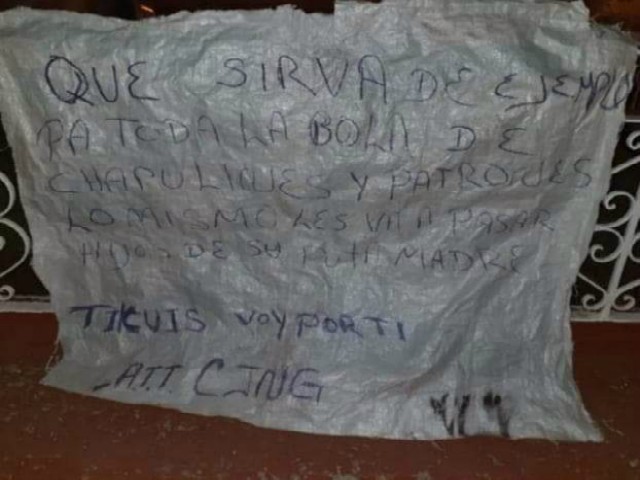 QUE SIRVA DE EJEMPLO
PA TODA LA BOLA DE
CHAPULINES Y PATRONES
LO MISMO LES VA A PASAR
HIJOS DE SU PUTA MADRE
TIKUIS VOY POR TI
ATT CJNG